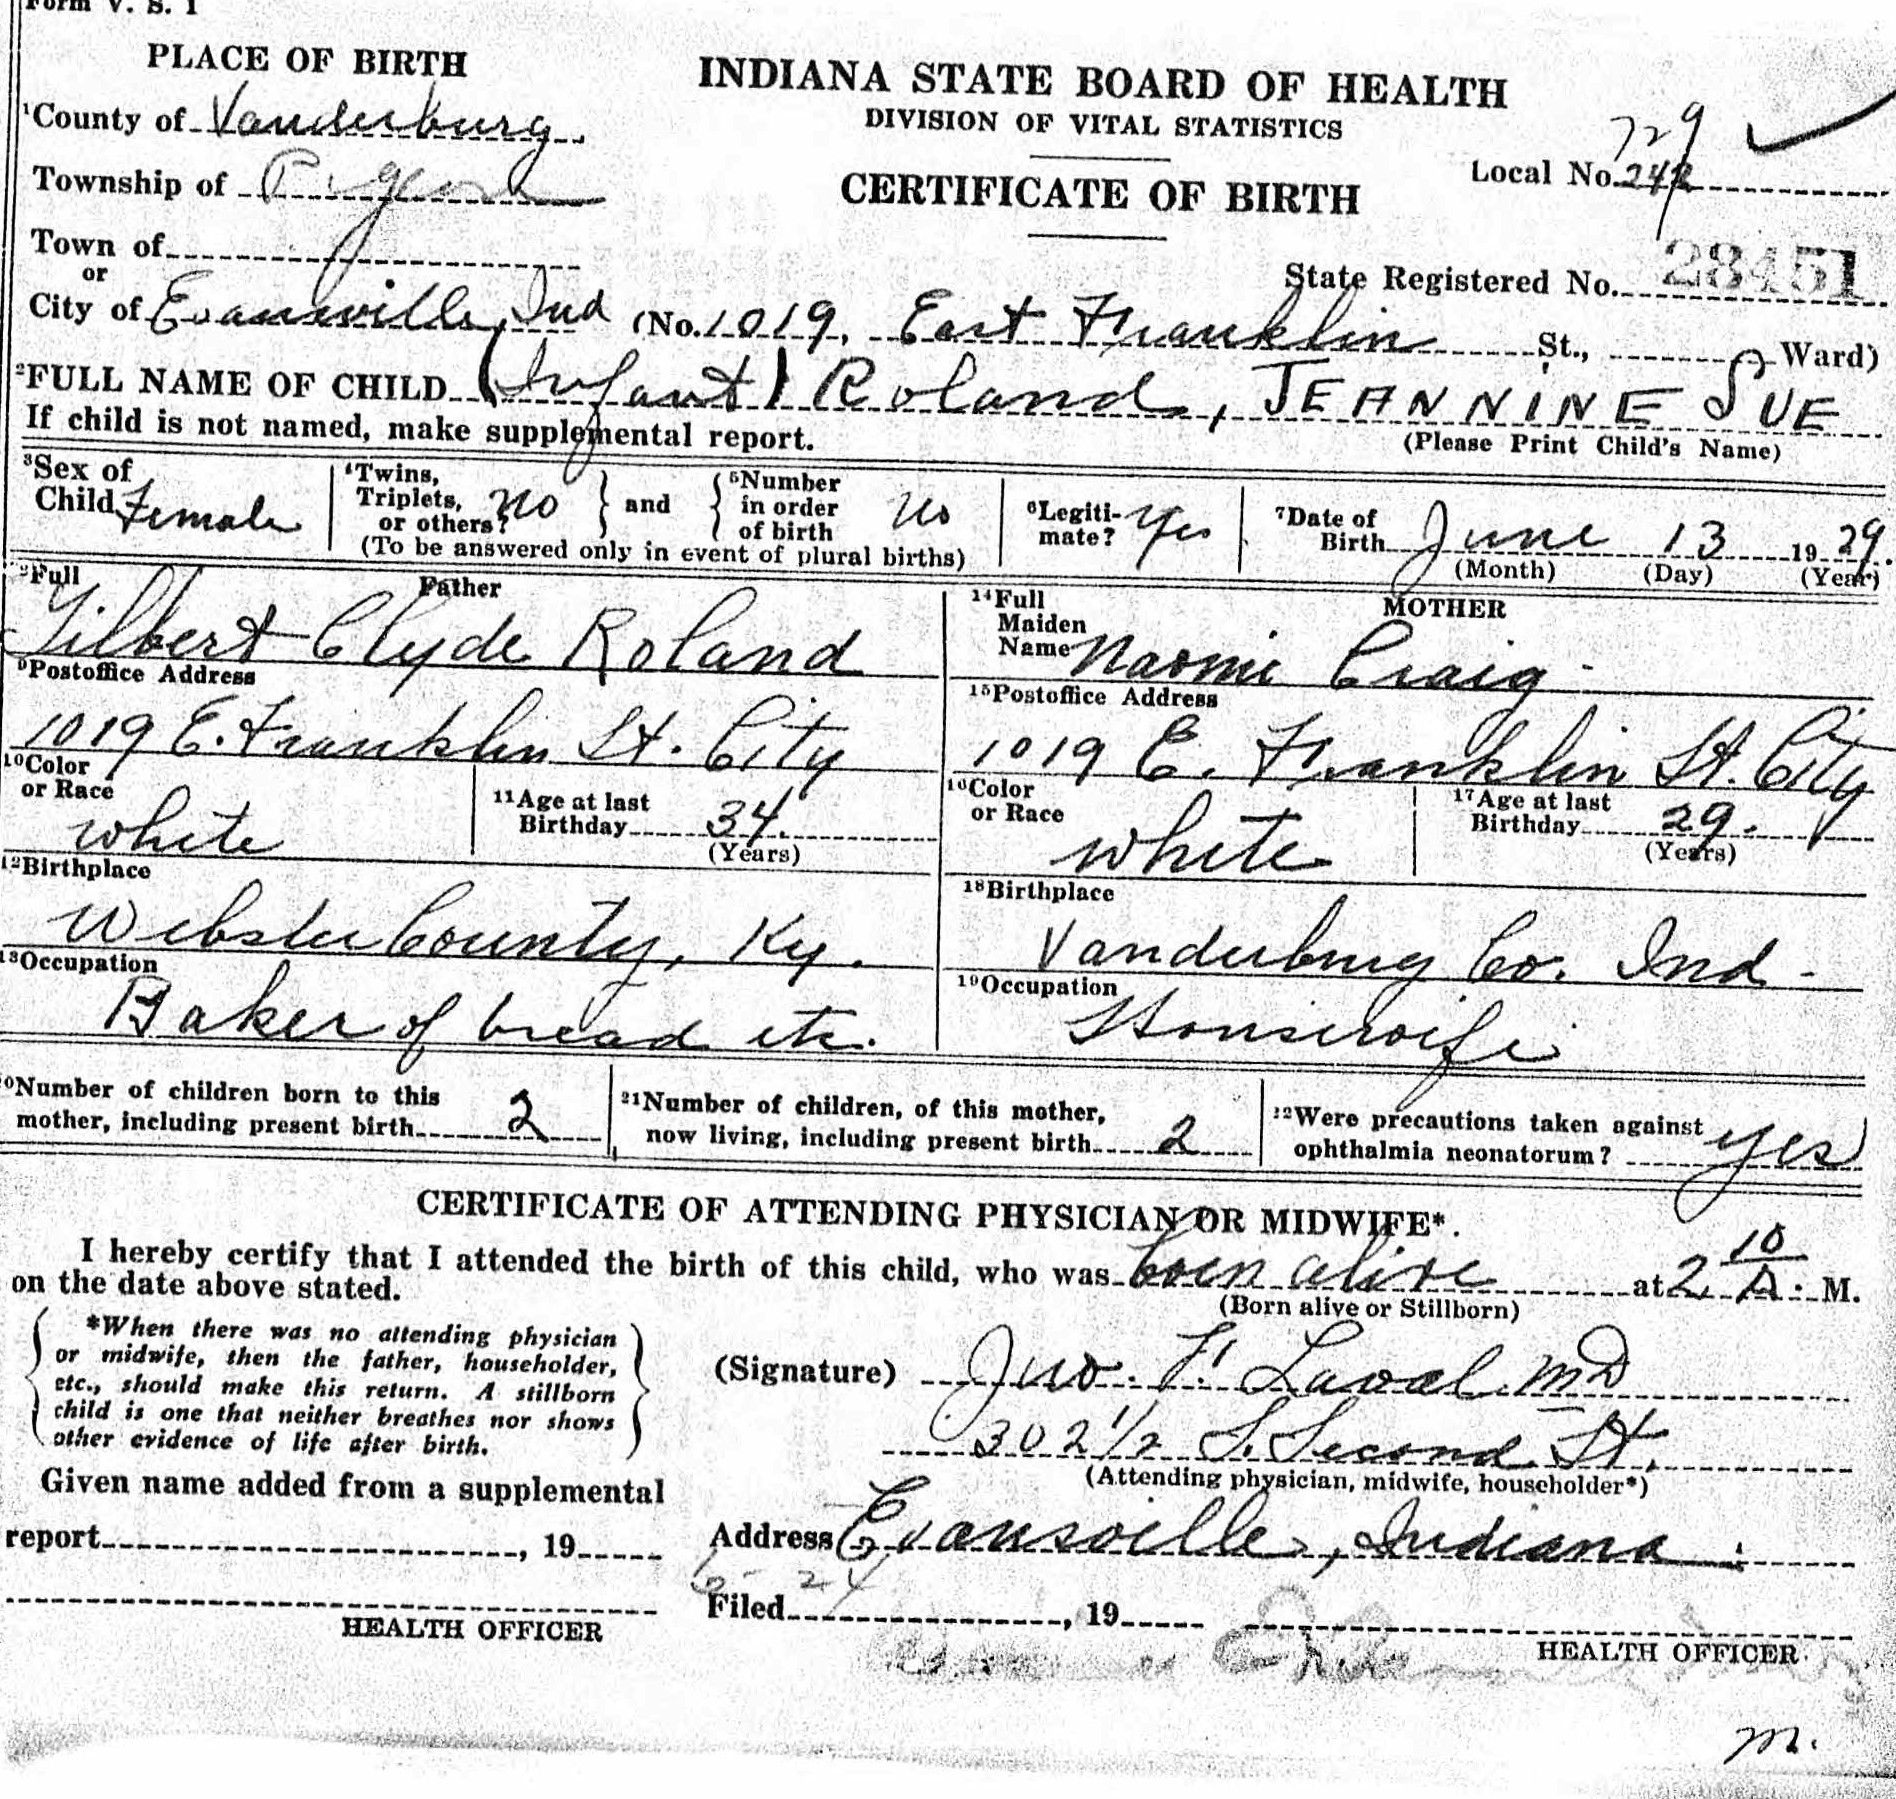 Form V. S. 1
PLACE OF BIRTH
INDIANA STATE BOARD OF HEALTH
DIVISION OF VITAL STATISTICS
CERTIFICATE OF BIRTH
1County of Vanderburg
Township of Pigeon
Town of
or
City of Evansville, Ind (No. 1019, East Franklin St., Ward)
729
Local No. 242
State Registered No. 28451
2FULL NAME OF CHILD (Infant) Roland, JEANNINE SUE
If child is not named, make supplemental report.
(Please Print Child's Name)
3Sex of Child Female
4Twins, Triplets, or others? no } and { 5Number in order of birth No
(To be answered only in event of plural births)
6Legitimate? Yes
7Date of Birth June 13 1929.
(Month) (Day) (Year)
Father
8Full
Gilbert Clyde Roland
9Postoffice Address
1019 E. Franklin St. City
10Color or Race
white
11Age at last Birthday 34.
(Years)
12Birthplace
Webster County, Ky.
13Occupation
Baker of bread etc.
MOTHER
14Full Maiden Name Naomi Craig
15Postoffice Address
1019 E. Franklin St. City
16Color or Race
white
17Age at last Birthday 29.
(Years)
18Birthplace
Vanderburg Co. Ind.
19Occupation
Housewife
20Number of children born to this mother, including present birth 2
21Number of children, of this mother, now living, including present birth 2
22Were precautions taken against ophthalmia neonatorum? yes
CERTIFICATE OF ATTENDING PHYSICIAN OR MIDWIFE*.
I hereby certify that I attended the birth of this child, who was born alive at 2 10 A. M.
(Born alive or Stillborn)
on the date above stated.
*When there was no attending physician
or midwife, then the father, householder,
etc., should make this return. A stillborn
child is one that neither breathes nor shows
other evidence of life after birth.
(Signature) Jno. F. Laval MD
302 1/2 S. Second St.
(Attending physician, midwife, householder*)
Given name added from a supplemental
report , 19
HEALTH OFFICER
Address Evansville, Indiana.
24
Filed , 19
HEALTH OFFICER
m.